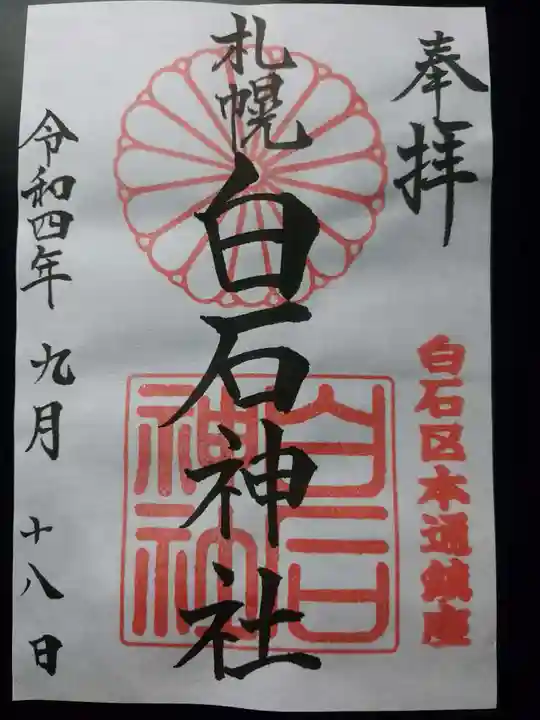 奉拝
白石区本通鎮座
札幌
白石神社
白石
神社
令和四年 九月 十八日